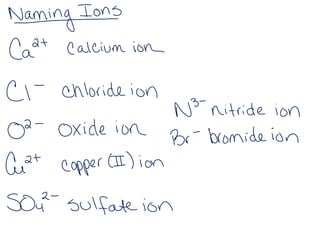 Naming Ions
Ca²⁺ calcium ion
Cl⁻ chloride ion
N³⁻ nitride ion
O²⁻ oxide ion
Br⁻ bromide ion
Cu²⁺ copper (II) ion
SO₄²⁻ sulfate ion